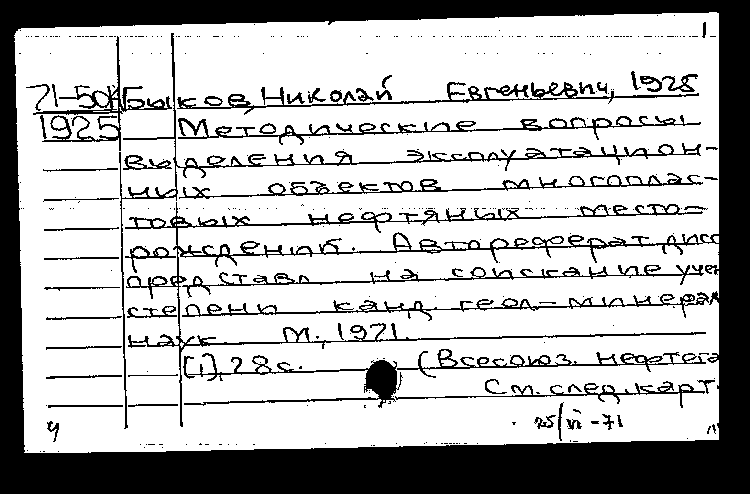 1
71-50К Быков, Николай Евгеньевич, 1925
1925 Методические вопросы
выделения эксплуатацион-
ных объектов многоплас-
товых нефтяных место-
рождений. Автореферат дисс
представл на соискание учен
степени канд. геол-минерал
наук М., 1971.
[1], 28 с. (Всесоюз. нефтега
См. след. карт.
ч 25/VI-71